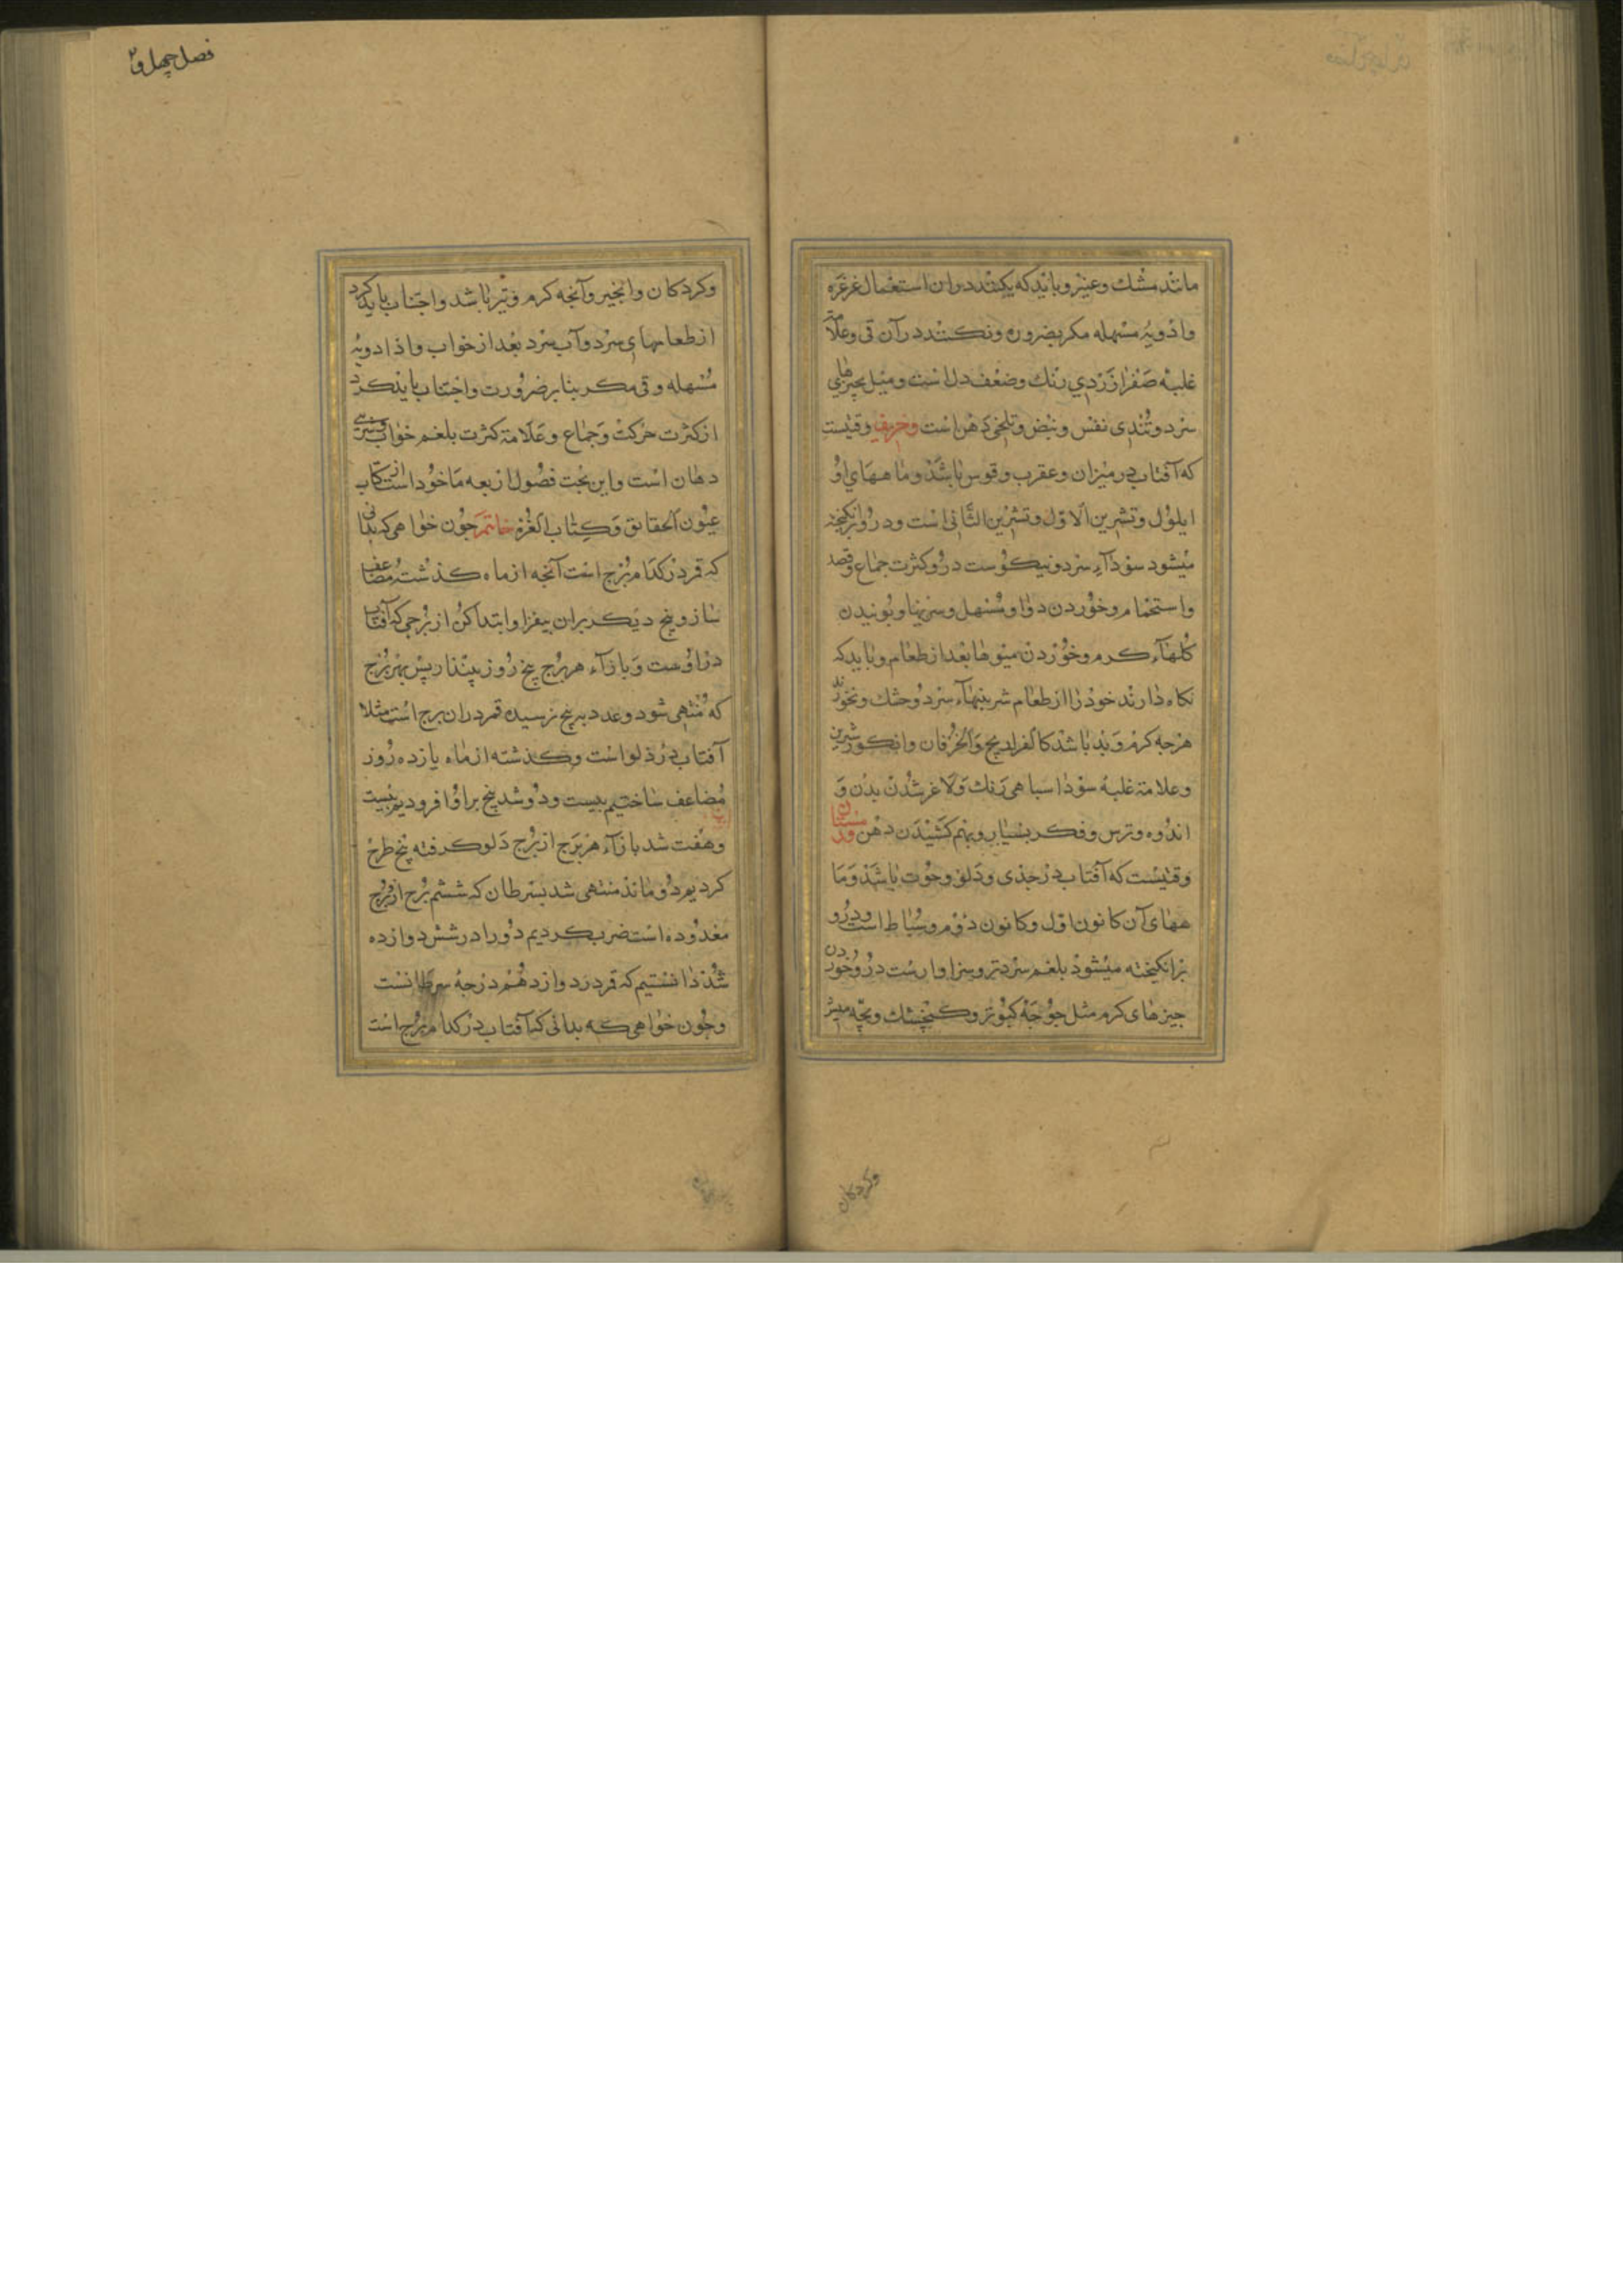 مانند مشك وعنبر وبايد كه نكنند دران استعمال غرغره
وادويهٔ مسهله مكر بضروره ونكنند درآن قى وعلامة
غلبهٔ صفرا زردي رنك وضعف دل است وميل بچيزهاي
سرد وتندى نفس ونبض وتلخى دهن است وخريف وقتيست
كه آفتاب در ميزان وعقرب وقوس باشد وماههاي او
ايلول وتشرين الاول وتشرين الثانى است ودرو برانكيخته
ميشود سودآء سرد ونيكوست درو كثرت جماع وفصد
واستحمام وخوردن دوا ومسهل وسبزيها وبوئيدن
كلهآء كرم وخوردن ميوها بعد از طعام وبايد كه
نكاه دارند خود را از طعام شرينيهآء سرد وخشك ونخورند
هرجه كرم وبد باشد كالفراريج والخرفان وانكور شيرين
وعلامة غلبهٔ سودا سياهى رنك ولاغر شدن بدن و
اندوه وترس وفكر بسيار وبهم كشيدن دهن وزمستان
وقتيست كه آفتاب در جدى ودلو وحوت باشد وما
ههاى آن كانون اول وكانون دوم وسباط است ودرو
برانكيخته ميشود بلغم سرد تر وسزاوارست درو خوردن
جيزهاى كرم مثل جوجهٔ كبوتر وكنجشك وبچه ميش
وكردكان
فصل چهل و٢
وكردكان وانجير وآنجه كرم وتر باشد واجتناب بايد كرد
از طعامهاي سرد وآب سرد بعد از خواب واز ادويهٔ
مسهله وقى مكر بنا بر ضرورت واجتناب بايد كرد
از كثرت حركت وجماع وعلامة كثرت بلغم خواب وترى
دهان است واين بحث فصول اربعه ماخود است از كتاب
عيون الحقايق وكتاب الغره خاتمه جون خواهى كه بدانى
كه قمر در كدام برج است آنجه از ماه كذشته مضاعف
ساز وپنج ديكر بران بيفزا وابتدا كن از برجى كه آفتاب
در اوست وبازآء هر برج پنج روز بيندار پس بهر برج
كه منتهى شود وعدد به پنج نرسيده قمر دران برج است مثلا
آفتاب در دلو است وكذشته از ماه يازده روز
مضاعف ساختيم بيست ودو شد پنج بر او افروديم بيست
وهفت شد بازآء هر برج از برج دلو كرفته پنج طرح
كرديم دو ماند منتهى شد بسرطان كه ششم برج از بروج
معدوده است ضرب كرديم دو را در شش دوازده
شد دانستيم كه قمر در دوازدهم درجهٔ سرطانست
وجون خواهى كه بدانى كه آفتاب در كدام برج است